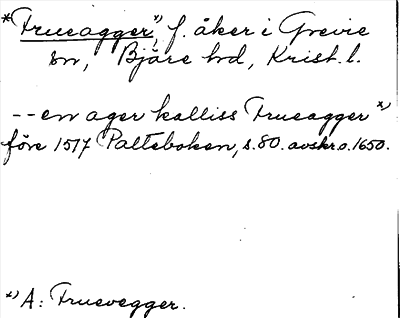 *Frueagger*), f. åker i Grevie
sn, Bjäre hd, Krist. l.
-- en ager kalliss Frueagger *)
före 1517 Palteboken, s. 80. avskr. o. 1650.
*) A: Fruevegger.